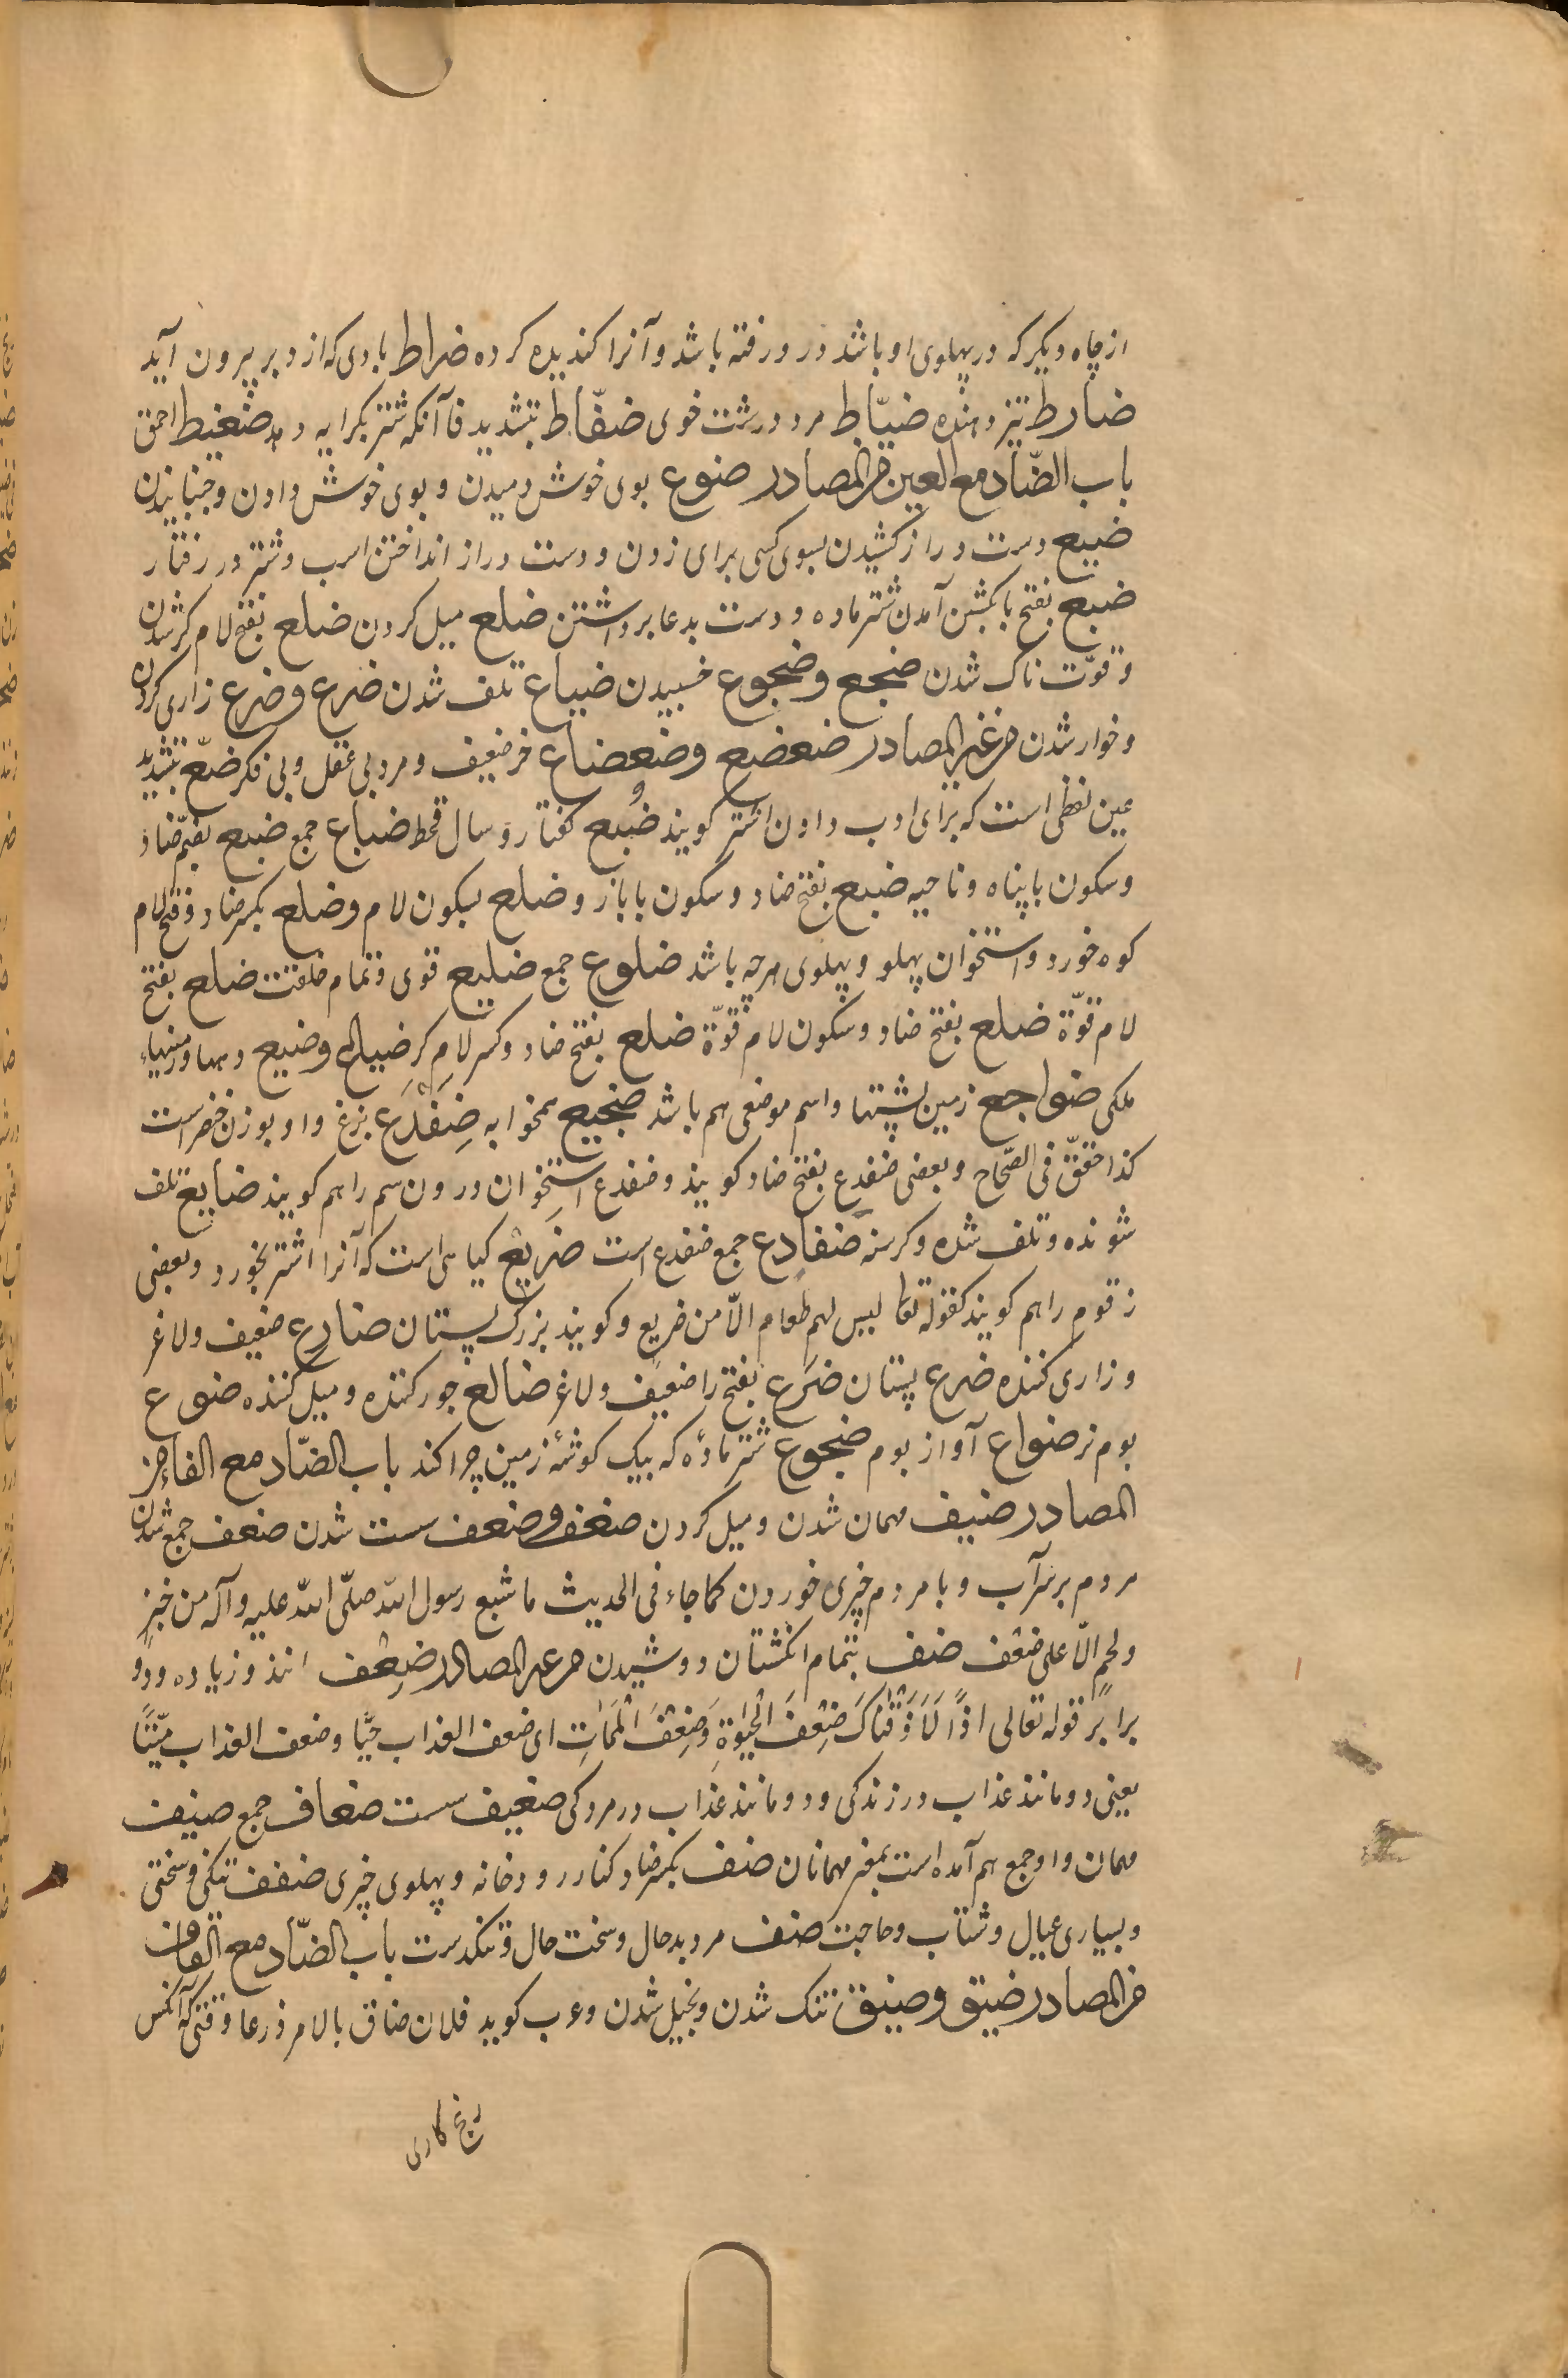 از چاه دیکر که در پهلوی او باشد در و رفته باشد و آنرا کندیده کرده ضراط بادی که از دبر بیرون آید
ضارط تیز دهنده ضیّاط مرد درشت خوی ضفّاط بتشدید فا آنکه شتر بکرایه دهد ضغیط احمق
باب الضّاد مع العین من المصادر ضوع بوی خوش دمیدن و بوی خوش دادن و جنبانیدن
ضبع دست دراز کشیدن بسوی کسی برای زدن و دست دراز انداختن اسب و شتر در رفتار
ضبع بفتح با بکشن آمدن شتر ماده و دست بدعا برداشتن ضلع میل کردن ضلع بفتح لام کژ شدن
و قوّت ناک شدن ضجع و ضجوع خسپیدن ضیاع تلف شدن ضرع و ضرع زاری کردن
و خوار شدن من غیر المصادر ضعضع و ضعضاع خر ضعیف و مرد بی عقل و بی فکر ضعّ بتشدید
عین لفظی است که برای ادب دادن اشتر کویند ضبُع کفتار و سال قحط ضباع جمع ضبع بضمّ ضاد
و سکون با پناه و ناحیه ضبع بفتح ضاد و سکون با بازو ضلع بسکون لام و ضلع بکسر ضاد و فتح لام
کوه خورد و استخوان پهلو و پهلوی هرچه باشد ضلوع جمع ضلیع قوی و تمام خلقت ضلع بفتح
لام قوّة ضلع بفتح ضاد و سکون لام قوّة ضلع بفتح ضاد و کسر لام کژ ضیاع و ضیع دهها و زمینهاء
ملکی ضواجع زمین پشتها و اسم موضعی هم باشد ضجیع همخوابه ضِفْدَع بزغ و او بوزن خنصر است
کذا حقّق فی الصّحاح و بعضی ضفدع بفتح ضاد کویند و ضفدع استخوان درون سم را هم کویند ضایع تلف
شونده و تلف شده و کرسنه ضفادع جمع ضفدع است ضریع کیاهی است که آنرا اشتر نخورد و بعضی
زقوم را هم کویند کقوله تعا لیس لهم طعام الّا من ضریع و کویند بزرک پستان ضارع ضعیف و لاغر
و زاری کننده ضرع پستان ضَرَع بفتح را ضعیف و لاغر ضالع جور کننده و میل کننده ضوع
بوم نر ضواع آواز بوم ضجوع شتر ماده که بیک کوشهٔ زمین چرا کند باب الضّاد مع الفاء من
المصادر ضیف مهمان شدن و میل کردن ضعف و ضعف سست شدن ضفف جمع شدن
مردم بر سر آب و با مردم چیزی خوردن کما جاء فی الحدیث ما شبع رسول الله صلّی الله علیه و آله من خبز
و لحم الّا علی ضفف ضف بتمام انکشتان دوشیدن من غیر المصادر ضِعْف مانند و زیاده و دو
برابر قوله تعالی اذًا لَاَذَقْنٰاکَ ضِعْفَ الْحَیٰوةِ وَ ضِعْفَ الْمَمٰاتِ ای ضعف العذاب حیًّا و ضعف العذاب میّتًا
یعنی دو مانند عذاب در زندکی و دو مانند عذاب در مردکی ضعیف سست ضعاف جمع ضیف
مهمان و او جمع هم آمده است بمعنی مهمانان ضف بکسر ضاد کنار رودخانه و پهلوی چیزی ضفف تنکی و سختی
و بسیاری عیال و شتاب و حاجت ضف مرد بدحال و سخت حال و تنکدست باب الضّاد مع القاف
من المصادر ضیق و ضیق تنک شدن و بخیل شدن و عرب کوید فلان ضاق بالامر ذرعا وقتی که آنکس